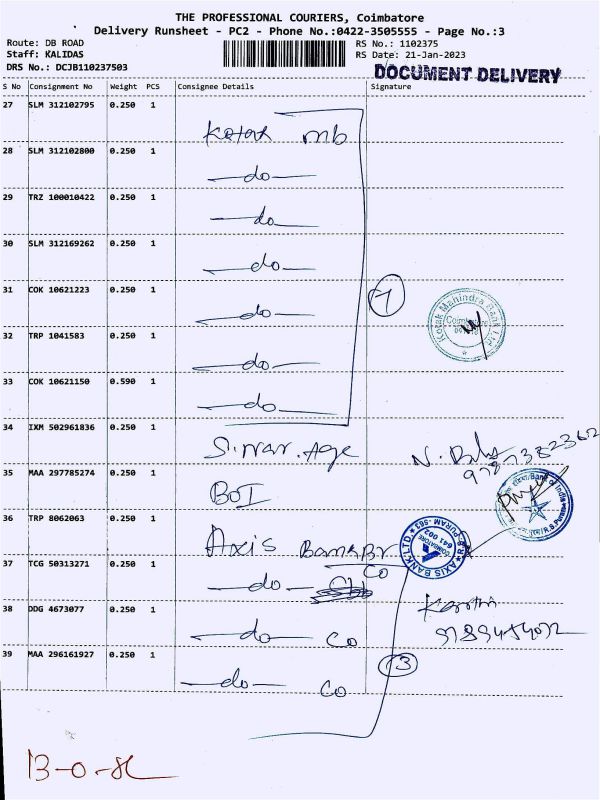 THE PROFESSIONAL COURIERS, Coimbatore
Delivery Runsheet - PC2 - Phone No.:0422-3505555 - Page No.:3
Route: DB ROAD
Staff: KALIDAS
DRS No.: DCJB110237503
RS No.: 1102375
RS Date: 21-Jan-2023
DOCUMENT DELIVERY
S No Consignment No Weight PCS Consignee Details Signature
27 SLM 312102795 0.250 1 Kotak mb
28 SLM 312102800 0.250 1 do
29 TRZ 100010422 0.250 1 do
30 SLM 312169262 0.250 1 do
31 COK 10621223 0.250 1 do
7
Kotak Mahindra Bank Ltd
32 TRP 1041583 0.250 1 do
33 COK 10621150 0.590 1 do
34 IXM 502961836 0.250 1
35 MAA 297785274 0.250 1 BOI
Bank of India
R.S.Puram
36 TRP 8062063 0.250 1 Axis Bank Br
CO
AXIS BANK LTD.
R.S. PURAM -
COIMBATORE
641 002
37 TCG 50313271 0.250 1 do
38 DDG 4673077 0.250 1 do CO
39 MAA 296161927 0.250 1 do CO
3